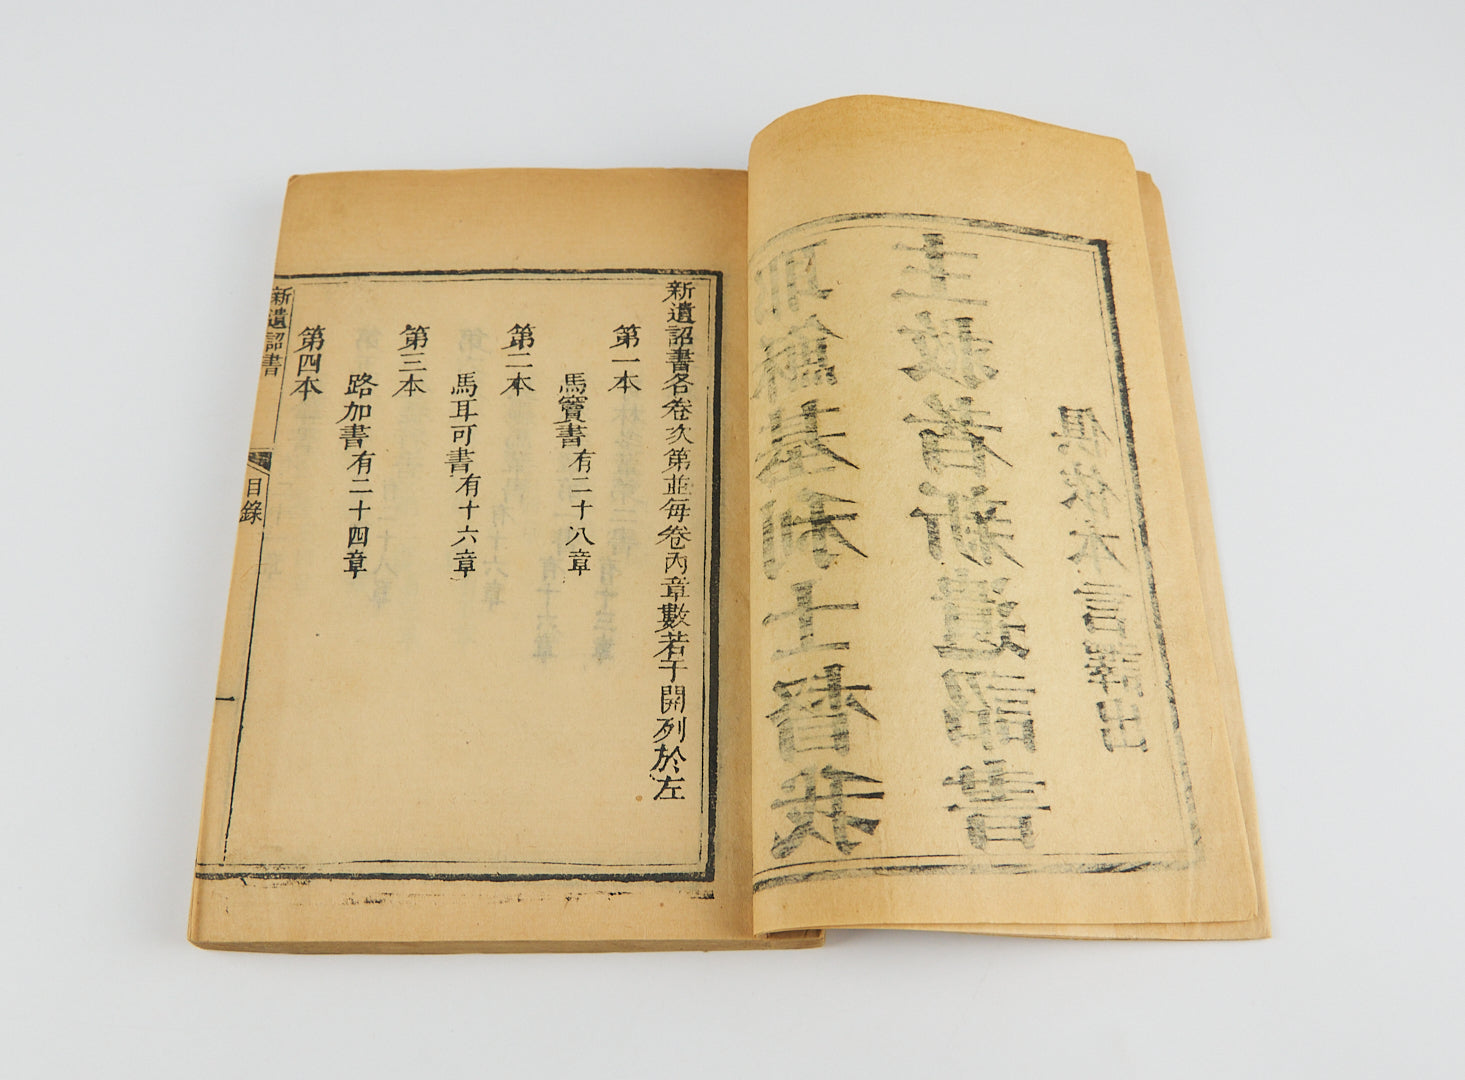 耶穌基利士督我
主救者新遺詔書
俱依本言譯出
新遺詔書各卷次第並每卷內章數若干開列於左
第一本
馬竇書有二十八章
第二本
馬耳可書有十六章
第三本
路加書有二十四章
第四本
新遺詔書
目錄
一